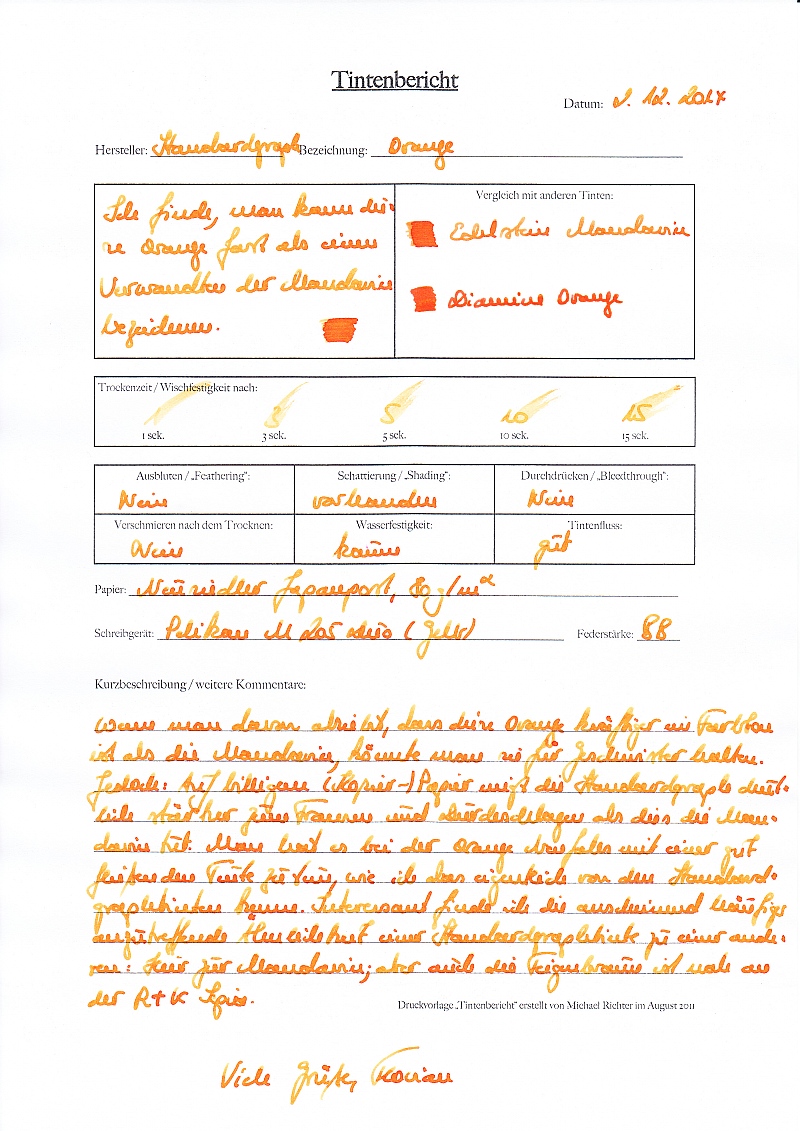 Tintenbericht
Datum: 2. 12. 2017
Hersteller: Standardgraph Bezeichnung: Orange
Ich finde, man kann die
se Orange fast als einen
Verwandten der Mandarin
bezeichnen.
Vergleich mit anderen Tinten:
Edelstein Mandarin
Diamine Orange
Trockenzeit / Wischfestigkeit nach:
1 3 5 10 15
1 sek. 3 sek. 5 sek. 10 sek. 15 sek.
Ausbluten / „Feathering": Schattierung / „Shading": Durchdrücken / „Bleedthrough":
Nein vorhanden Nein
Verschmieren nach dem Trocknen: Wasserfestigkeit: Tintenfluss:
Nein kaum gut
Papier: Neusiedler Japanpost, 80 g/m²
Schreibgerät: Pelikan M 205 duo (gelb) Federstärke: BB
Kurzbeschreibung / weitere Kommentare:
Wenn man davon absieht, dass diese Orange kräftiger im Farbton
ist als die Mandarin, könnte man sie für Geschwister halten.
Jedoch: Auf billigem (Kopier-)Papier neigt die Standardgraph deut-
lich stärker zum Fransen und Durchschlagen als dies die Man-
darin tut. Man hat es bei der Orange mit einer gut
fließenden Tinte zu tun, wie ich das eigentlich von den Standard-
graphtinten kenne. Interessant finde ich die anscheinend häufiger
anzutreffende Ähnlichkeit einer Standardgraphtinte zu einer ande-
ren: Hier zur Mandarin; aber auch die Feigenbraun ist nahe an
der R+K Sepia.
Druckvorlage „Tintenbericht" erstellt von Michael Richter im August 2011
Viele Grüße, Florian